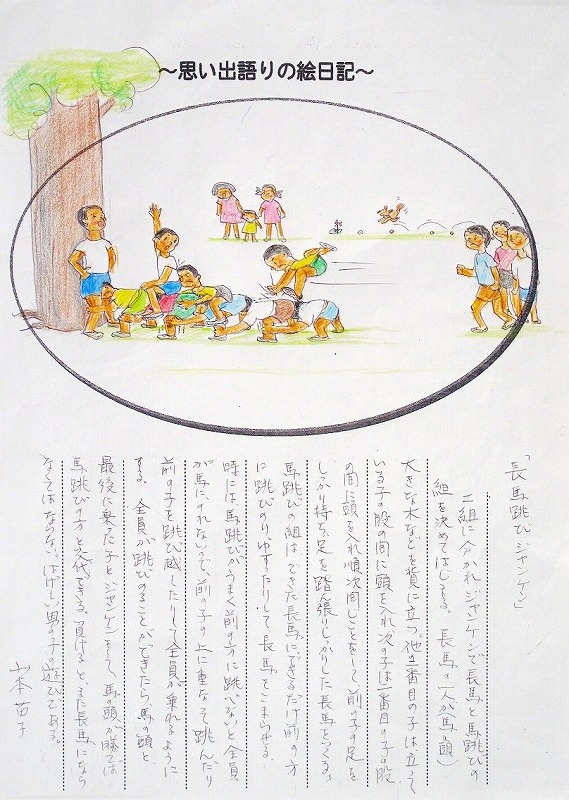 ～思い出語りの絵日記～
「長馬跳びジャンケン」
二組に分かれ ジャンケンで長馬と馬跳びの
組を決めてはじまる。長馬の一人が(馬の頭)
大きな木などを背に立つ。他の一番目の子は立って
いる子の股の間に頭を入れ次の子は一番目の子の股
の間に頭を入れ順次同じことをして、前の子の足を
しっかり持ち、足を踏ん張りしっかりした長馬をつくる。
馬跳びの組は できた長馬に、できるだけ前の方
に跳びのり、ゆすったりして、長馬をこまらせる。
時には馬跳びがうまく前の方に跳べないと 全員
が馬にのれないので、前の子の上に重なって跳んだり
前の子を跳び越したりして全員が乗れるように
する。全員が跳びのることができたら、馬の頭と
最後に乗った子と ジャンケンをして、馬の頭が勝てば
馬跳びの方と交代できる。負けると、また長馬になら
なくてはならない。はげしい男の子の遊びである。
山本苗子